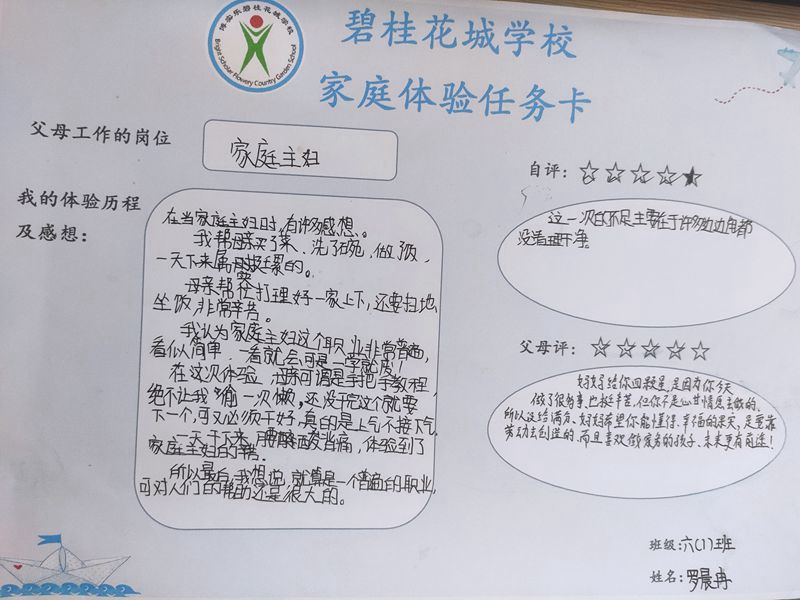 博实乐碧桂花城学校
Bright Scholar Flowery Country Garden School
碧桂花城学校
家庭体验任务卡
父母工作的岗位
家庭主妇
我的体验历程
及感想：
在当家庭主妇时，有许多感想。
我帮母亲买了菜、洗了碗，做了饭，
一天下来属母挺累的。
母亲帮忙打理好一家上下，还要扫地、
坐饭，非常辛苦。
我认为家庭主妇这个职业非常普通，
看似简单，一看就会可是一学就废！
在这次体验，母亲可谓是手把手教程，
绝不让我偷一次懒，还没干完这个就要
下一个，可又必须干好，真的是上气不接下气。
一天干下来，腰酸背痛，体验到了
家庭主妇的辛苦。
所以最后，我想说，就算是一个普通的职业，
可对人们的帮助还是很大的。
自评：☆☆☆☆★
这一次的不足主要在于许多边边角都
没清理干净。
父母评：☆☆☆☆☆
妈妈给你四颗星，是因为你今天
做了很多事，也挺辛苦，但你不是心甘情愿去做的，
所以没给满分，妈妈希望你能懂得，幸福的果实，是要靠
劳动去创造的，而且喜欢做家务的孩子，未来更有前途！
班级：六(1)班
姓名：罗晨冉